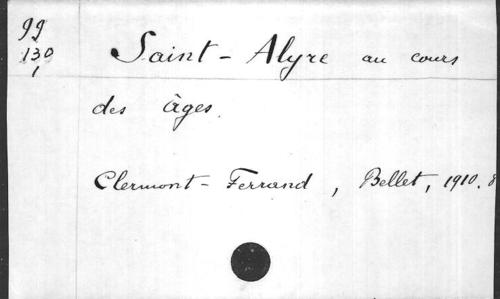 99
130
1
Saint-Alyre au cours
des âges.
Clermont-Ferrand, Bellet, 1910. 8